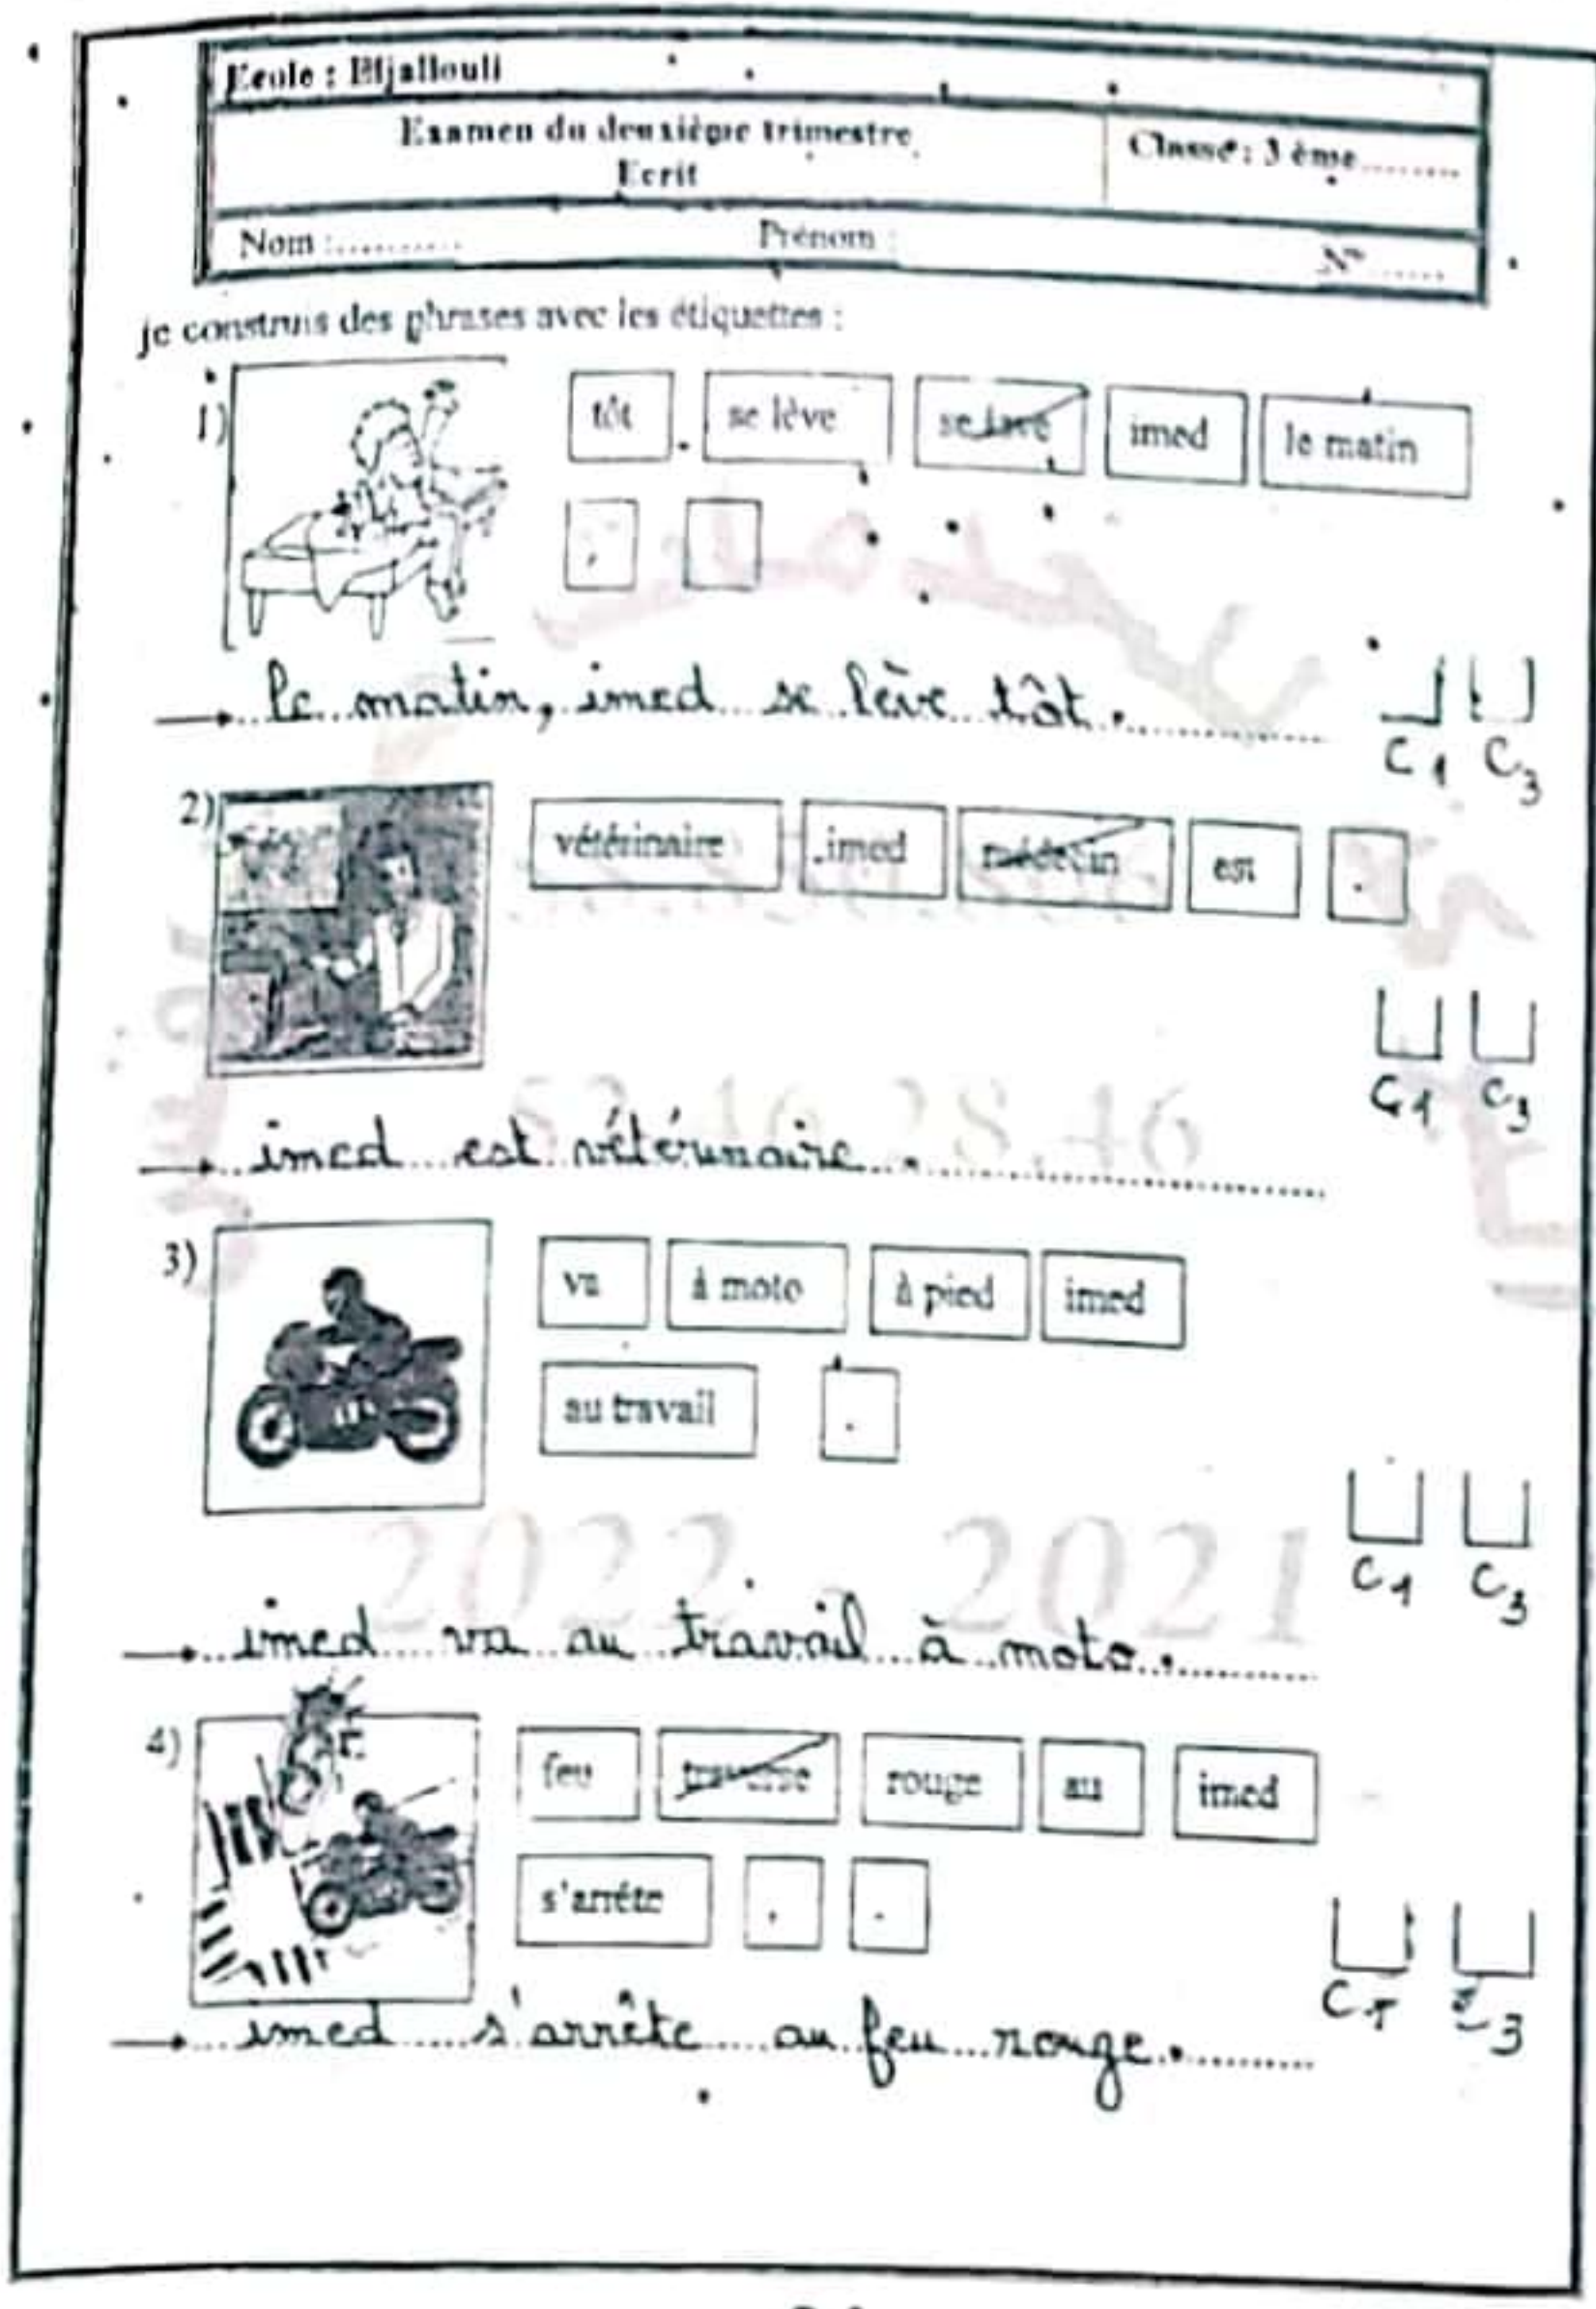 Ecole : Eljallouli
Examen du deuxième trimestre
Ecrit
Classe : 3 ème ........
Nom :..........
Prénom :
N° ......
je construis des phrases avec les étiquettes :
1)
tôt se lève se lave imed le matin
,
le matin, imed se lève tôt.
C1 C3
2)
vétérinaire imed médecin est .
C1 C3
imed est vétérinaire.
3)
va à moto à pied imed
au travail .
C1 C3
imed va au travail à moto.
4)
feu traverse rouge au imed
s'arrête , .
C1 C3
imed s'arrête au feu rouge.
52.46.28.46
2022 2021